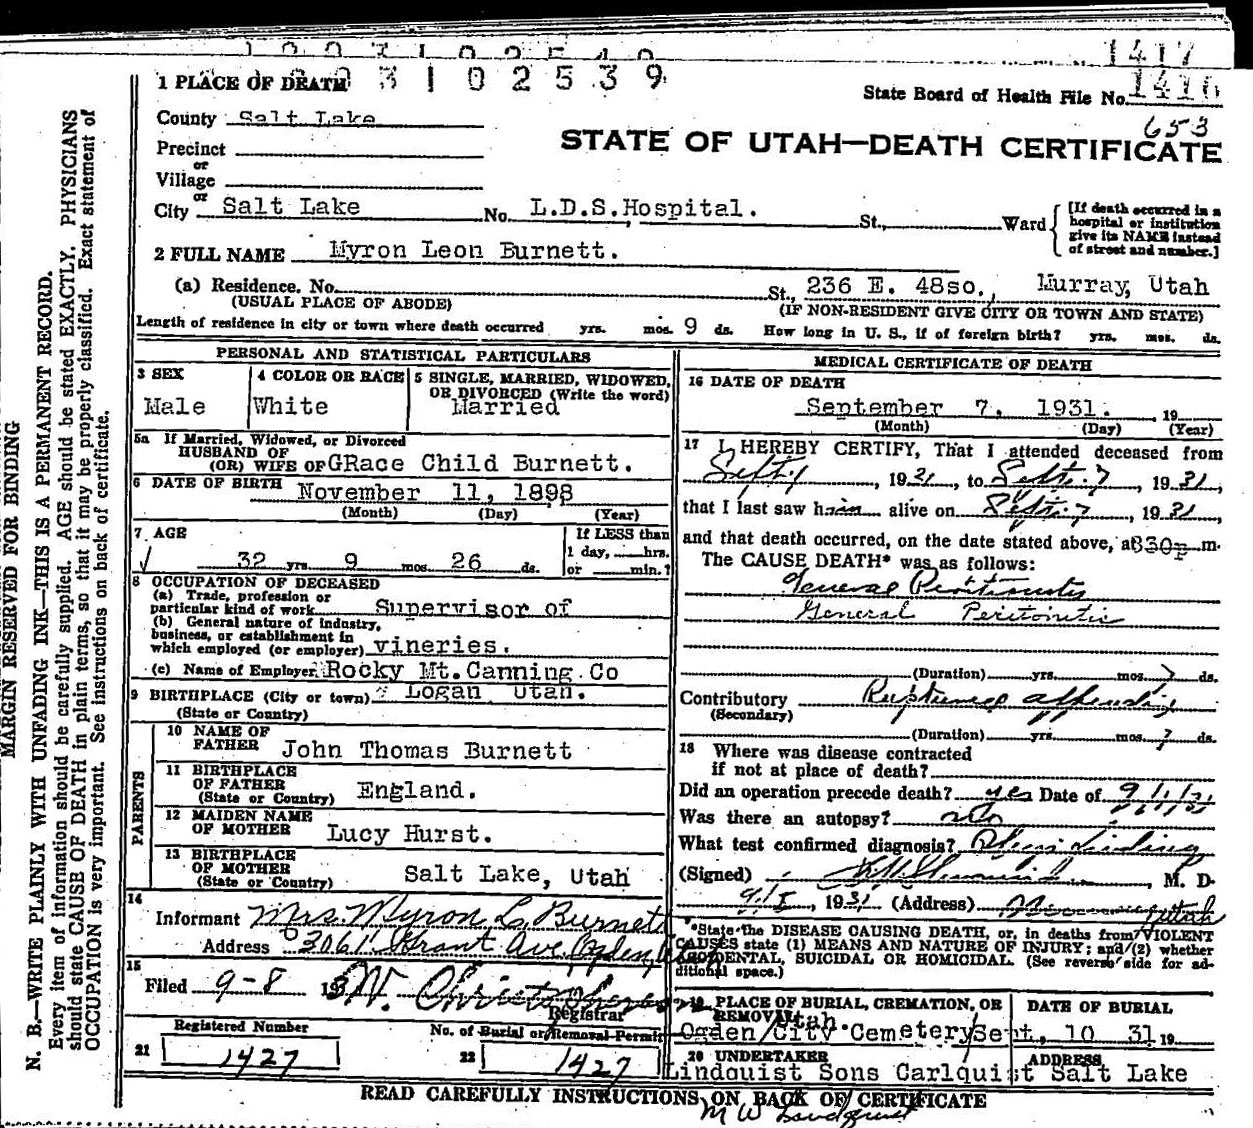 1417
1 PLACE OF DEATH
3102539
State Board of Health File No. 1416
653
County Salt Lake
STATE OF UTAH—DEATH CERTIFICATE
Precinct
or
Village
or
City Salt Lake No. L.D.S.Hospital. St., Ward
[If death occurred in a hospital or institution give its NAME instead of street and number.]
2 FULL NAME Myron Leon Burnett.
(a) Residence. No. St., 236 E. 48so., Murray, Utah
(USUAL PLACE OF ABODE) (IF NON-RESIDENT GIVE CITY OR TOWN AND STATE)
Length of residence in city or town where death occurred yrs. mos. 9 ds. How long in U. S., if of foreign birth? yrs. mos. ds.
PERSONAL AND STATISTICAL PARTICULARS
3 SEX
Male
4 COLOR OR RACE
White
5 SINGLE, MARRIED, WIDOWED, OR DIVORCED (Write the word)
Married
5a If Married, Widowed, or Divorced
HUSBAND OF
(OR) WIFE OF GRace Child Burnett.
6 DATE OF BIRTH November 11, 1898
(Month) (Day) (Year)
7 AGE
32 yrs. 9 mos. 26 ds.
If LESS than
1 day, hrs.
or min.?
8 OCCUPATION OF DECEASED
(a) Trade, profession or
particular kind of work Supervisor of
(b) General nature of industry,
business, or establishment in
which employed (or employer) vineries.
(c) Name of Employer Rocky Mt.Canning Co
9 BIRTHPLACE (City or town) Logan Utah.
(State or Country)
PARENTS
10 NAME OF
FATHER John Thomas Burnett
11 BIRTHPLACE
OF FATHER England.
(State or Country)
12 MAIDEN NAME
OF MOTHER Lucy Hurst.
13 BIRTHPLACE
OF MOTHER Salt Lake, Utah
(State or Country)
14
Informant Mrs. Myron L. Burnett
Address 3061 Grant Ave, Ogden,
15
Filed 9-8 193
Registrar
Registered Number
21 1427
No. of Burial or Removal Permit
22 1427
MEDICAL CERTIFICATE OF DEATH
16 DATE OF DEATH
September 7, 1931. 19
(Month) (Day) (Year)
17 I HEREBY CERTIFY, That I attended deceased from
Sept. 1, 1931, to Sept. 7, 1931,
that I last saw him alive on Sept. 7, 1931
and that death occurred, on the date stated above, at 830p m.
The CAUSE DEATH* was as follows:
General Peritonitis
General Peritonitis
(Duration) yrs. mos. 7 ds.
Contributory Ruptured appendix
(Secondary)
(Duration) yrs. mos. 7 ds.
18 Where was disease contracted
if not at place of death?
Did an operation precede death? yes Date of 9/1/31
Was there an autopsy? No
What test confirmed diagnosis?
(Signed) M. D.
1931 (Address) Utah
*State the DISEASE CAUSING DEATH, or, in deaths from VIOLENT
CAUSES state (1) MEANS AND NATURE OF INJURY; and (2) whether
ACCIDENTAL, SUICIDAL OR HOMICIDAL. (See reverse side for ad-
ditional space.)
19 PLACE OF BURIAL, CREMATION, OR
REMOVAL Utah.
Ogden City Cemetery
DATE OF BURIAL
Sept, 10 31 19
20 UNDERTAKER
Lindquist Sons Carlquist
ADDRESS
Salt Lake
READ CAREFULLY INSTRUCTIONS ON BACK OF CERTIFICATE
M W Lindquist
MARGIN RESERVED FOR BINDING
N. B.—WRITE PLAINLY WITH UNFADING INK—THIS IS A PERMANENT RECORD.
Every item of information should be carefully supplied. AGE should be stated EXACTLY. PHYSICIANS
should state CAUSE OF DEATH in plain terms, so that it may be properly classified. Exact statement of
OCCUPATION is very important. See instructions on back of certificate.